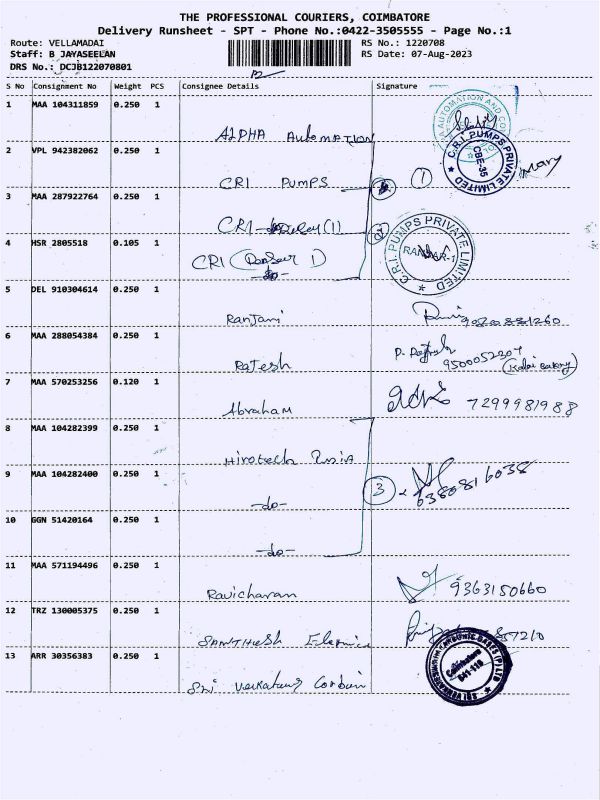 THE PROFESSIONAL COURIERS, COIMBATORE
Delivery Runsheet - SPT - Phone No.:0422-3505555 - Page No.:1
Route: VELLAMADAI RS No.: 1220708
Staff: B JAYASEELAN RS Date: 07-Aug-2023
DRS No.: DCJB122070801
S No Consignment No Weight PCS Consignee Details Signature
1 MAA 104311859 0.250 1
ALPHA AUTOMATION
2 VPL 942382062 0.250 1
CRI PUMPS
C.R.I. PUMPS PRIVATE LIMITED
CBE-35
1
3 MAA 287922764 0.250 1
CRI (1)
4 HSR 2805518 0.105 1
CRI
-do-
C.R.I. PUMPS PRIVATE LIMITED
5 DEL 910304614 0.250 1
Ranjani
6 MAA 288054384 0.250 1
Rajesh
P.
7 MAA 570253256 0.120 1
Abraham 7299981988
8 MAA 104282399 0.250 1
Hirotech
9 MAA 104282400 0.250 1
-do- 3 6380816038
10 GGN 51420164 0.250 1
-do-
11 MAA 571194496 0.250 1
Ravicharan 9363150660
12 TRZ 130005375 0.250 1
Santhosh
13 ARR 30356383 0.250 1
Sri
Coimbatore
641-110